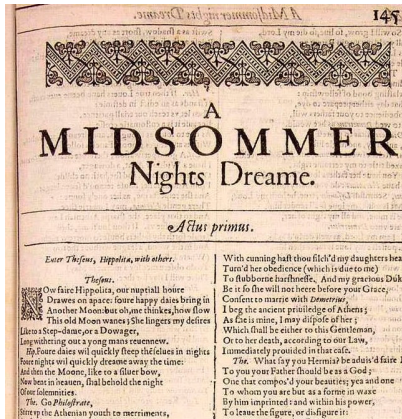 145
A
MIDSOMMER
Nights Dreame.
Actus primus.
Enter Theseus, Hippolita, with others.
Theseus.
NOw faire Hippolita, our nuptiall houre
Drawes on apace: foure happy daies bring in
Another Moon: but oh, me thinkes, how slow
This old Moon wanes; She lingers my desires
Like to a Step-dame, or a Dowager,
Long withering out a yong mans reuennew.
Hip. Foure daies wil quickly steep thẽselues in nights
Foure nights wil quickly dreame away the time:
And then the Moone, like to a siluer bow,
Now bent in heauen, shal behold the night
Of our solemnities.
The. Go Philostrate,
Stirre vp the Athenian youth to merriments,
With cunning hast thou filch'd my daughters hea
Turn'd her obedience (which is due to me)
To stubborne harshnesse. And my gracious Duk
Be it so she will not heere before your Grace,
Consent to marrie with Demetrius,
I beg the ancient priuiledge of Athens;
As she is mine, I may dispose of her;
Which shall be either to this Gentleman,
Or to her death, according to our Law,
Immediately prouided in that case.
The. What say you Hermia? be aduis'd faire
To you your Father should be as a God;
One that compos'd your beauties; yea and one
To whom you are but as a forme in waxe
By him imprinted: and within his power,
To leaue the figure, or disfigure it: